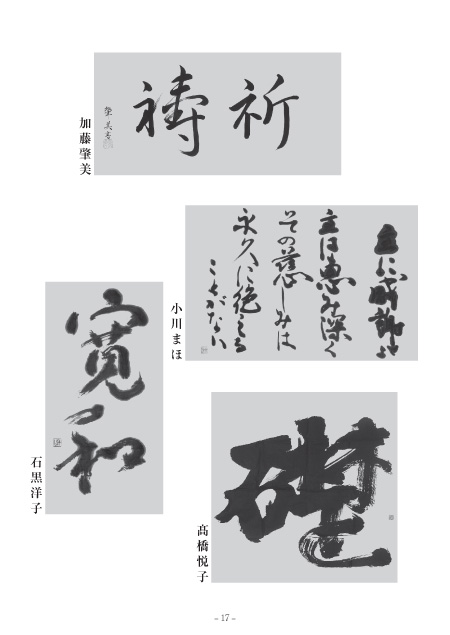 祈禱
肇美書
加藤肇美
主に感謝せよ
主は恵み深く
その慈しみは
永久に絶える
ことがない
小川まほ
寛和
石黒洋子
礎
髙橋悦子
- 17 -